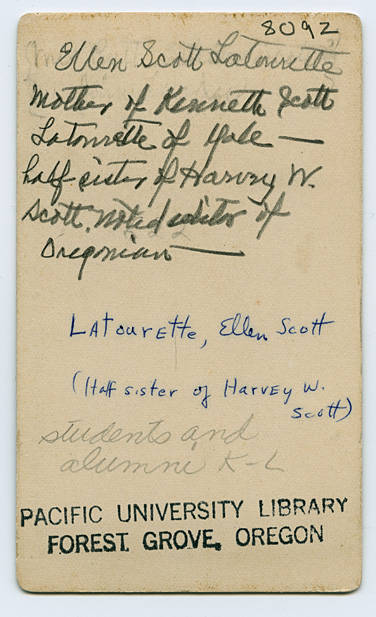 8092
Ellen Scott Latourette
Mother of Kenneth Scott
Latourette of Yale —
half-sister of Harvey W.
Scott, noted editor of
Oregonian —
LATOURETTE, Ellen Scott
(Half sister of HARVEY W.
Scott)
students and
alumni K-L
PACIFIC UNIVERSITY LIBRARY
FOREST GROVE, OREGON